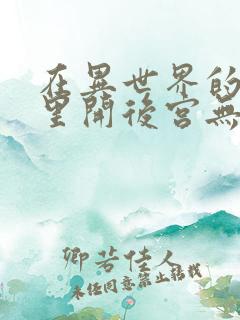 在異世界的
里開後宮無
卿若佳人
未經同意禁止轉載